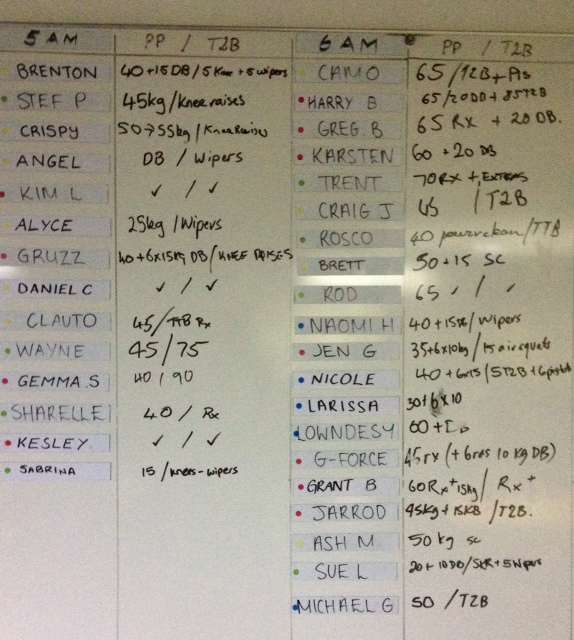 5 AM PP / T2B
BRENTON 40+15DB/5 Knee+5wipers
STEF P 45kg/Knee raises
CRISPY 50→55kg/KneeRaises
ANGEL DB / Wipers
KIM L ✓ / ✓
ALYCE 25kg/Wipers
GRUZZ 40+6x15kg DB/KNEE RAISES
DANIEL C ✓ / ✓
CLAUTO 45/TTB Rx
WAYNE 45/75
GEMMA.S 40/90
SHARELLE 40 / Rx
KESLEY ✓ / ✓
SABRINA 15 /knees-wipers
6 AM PP / T2B
CAMO 65/12B+
HARRY B 65/20DB+85T2B
GREG.B 65 RX + 20 DB.
KARSTEN 60 +20 DB
TRENT 70RX +EXTRAS
CRAIG J 45 /T2B
ROSCO 40 /TTB
BRETT 50+15 SC
ROD 65 ✓ / ✓
NAOMI H 40+15DB/Wipers
JEN G 35+6x10kg/15 airsquats
NICOLE 40+6x15/5T2B+
LARISSA 30+6x10
LOWNDESY 60+
G-FORCE 45rx (+6rds 10 kg DB)
GRANT B 60Rx+15kg/ Rx+
JARROD 45kg+15KB/T2B.
ASH M 50kg sc
SUE L 20+10DB/SKR+5Wipers
MICHAEL G 50 /T2B